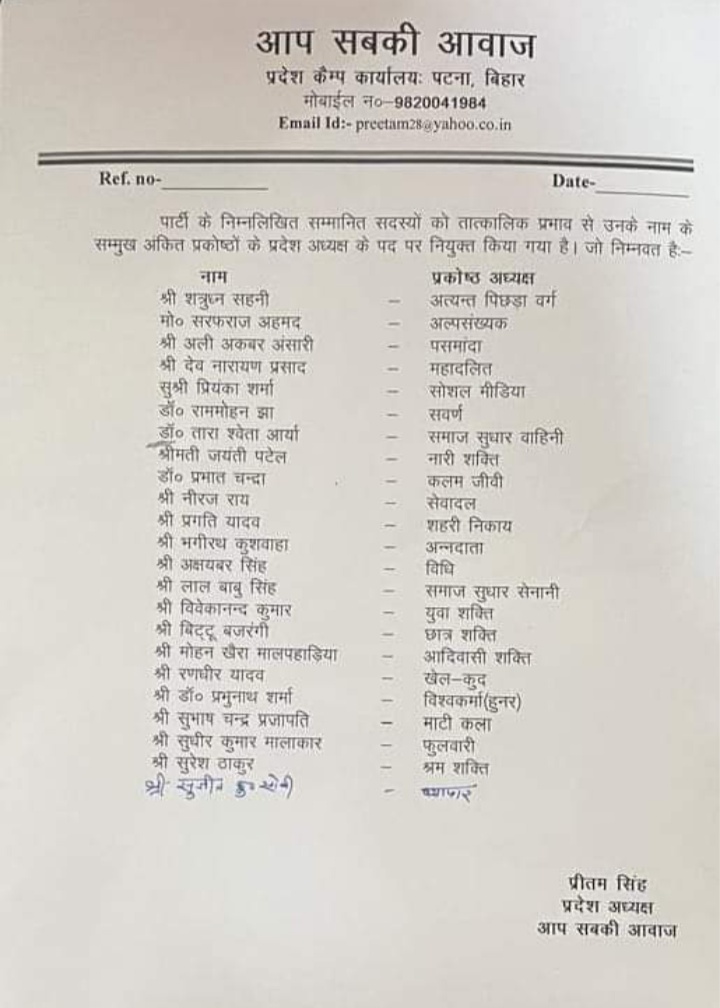 आप सबकी आवाज
प्रदेश कैम्प कार्यालयः पटना, बिहार
मोबाईल न०–9820041984
Email Id:- preetam28@yahoo.co.in
Ref. no-____________ Date-____________
पार्टी के निम्नलिखित सम्मानित सदस्यों को तात्कालिक प्रभाव से उनके नाम के
सम्मुख अंकित प्रकोष्ठों के प्रदेश अध्यक्ष के पद पर नियुक्त किया गया है। जो निम्नवत है:–
नाम प्रकोष्ठ अध्यक्ष
श्री शत्रुध्न सहनी – अत्यन्त पिछड़ा वर्ग
मो० सरफराज अहमद – अल्पसंख्यक
श्री अली अकबर अंसारी – पसमांदा
श्री देव नारायण प्रसाद – महादलित
सुश्री प्रियंका शर्मा – सोशल मीडिया
डॉ० राममोहन झा – सवर्ण
डॉ० तारा श्वेता आर्या – समाज सुधार वाहिनी
श्रीमती जयंती पटेल – नारी शक्ति
डॉ० प्रभात चन्द्रा – कलम जीवी
श्री नीरज राय – सेवादल
श्री प्रगति यादव – शहरी निकाय
श्री भगीरथ कुशवाहा – अन्नदाता
श्री अक्षयबर सिंह – विधि
श्री लाल बाबु सिंह – समाज सुधार सेनानी
श्री विवेकानन्द कुमार – युवा शक्ति
श्री बिट्टू बजरंगी – छात्र शक्ति
श्री मोहन खैरा मालपहाड़िया – आदिवासी शक्ति
श्री रणधीर यादव – खेल–कुद
श्री डॉ० प्रभुनाथ शर्मा – विश्वकर्मा(हुनर)
श्री सुभाष चन्द्र प्रजापति – माटी कला
श्री सुधीर कुमार मालाकार – फुलवारी
श्री सुरेश ठाकुर – श्रम शक्ति
श्री – व्यापार
प्रीतम सिंह
प्रदेश अध्यक्ष
आप सबकी आवाज